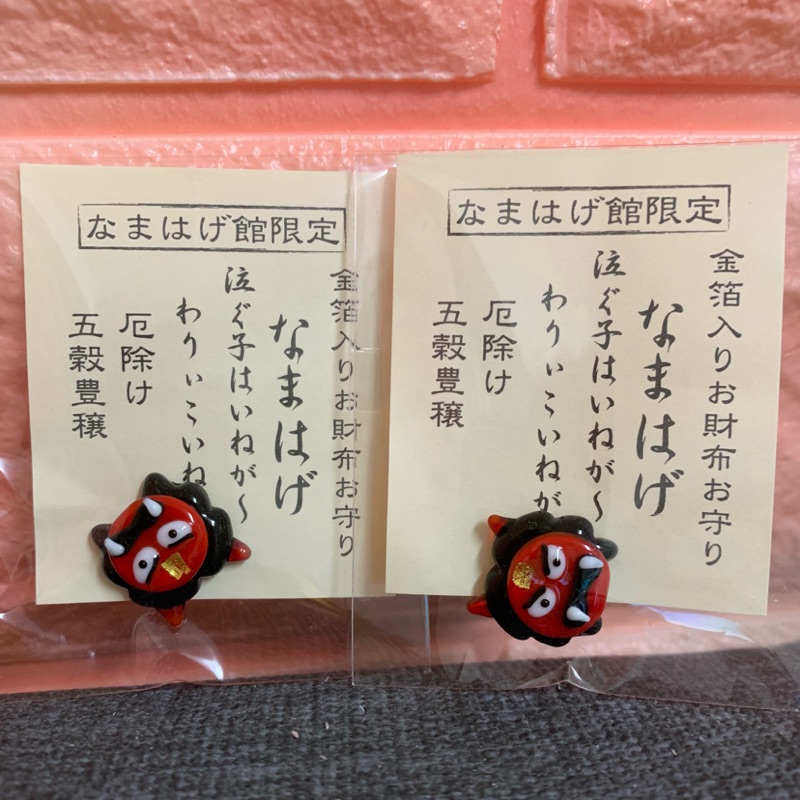 なまはげ館限定
金箔入りお財布お守り
なまはげ
泣ぐ子はいねが～
わりぃこいね
厄除け
五穀豊穣
なまはげ館限定
金箔入りお財布お守り
なまはげ
泣ぐ子はいねが～
わりぃこいねが
厄除け
五穀豊穣